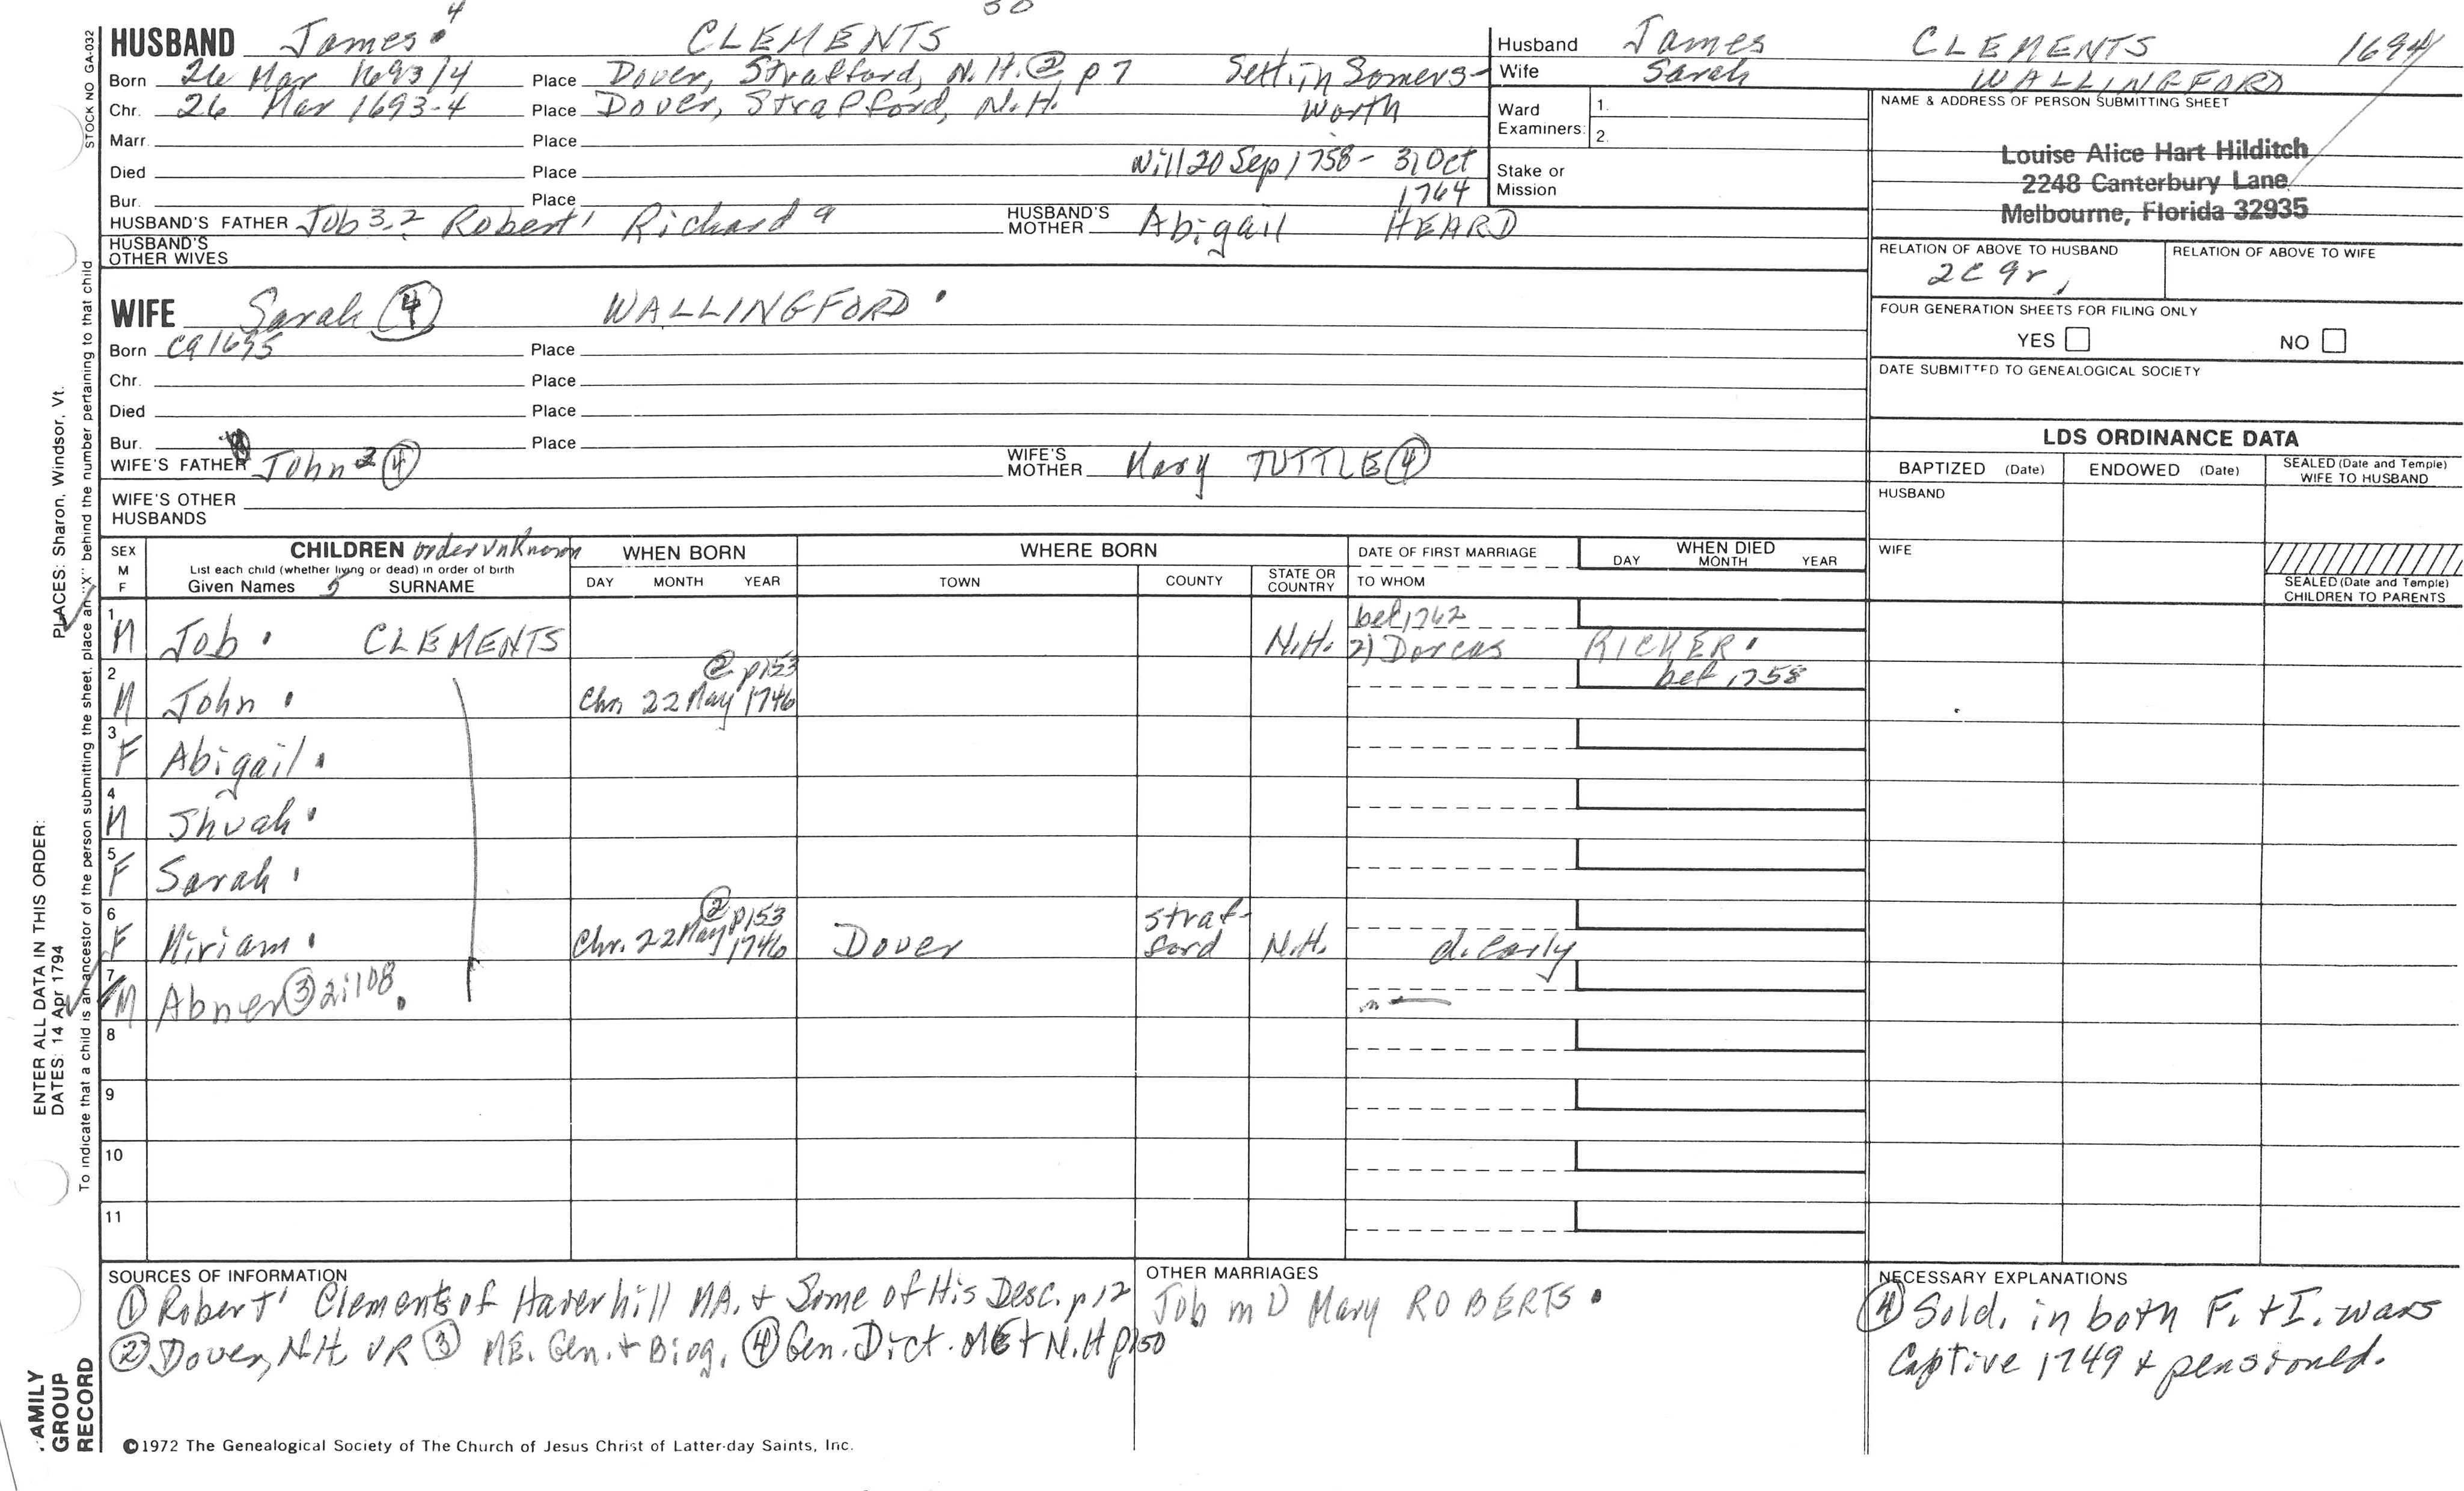 4 30
HUSBAND James 4 CLEMENTS
Born 26 Mar 1693/4 Place Dover, Strafford, N.H. ② p 7 Sett. in Somers-
Chr. 26 Mar 1693-4 Place Dover, Strafford, N.H. worth
Marr. Place
Died Place Will 20 Sep 1758 - 31 Oct
Bur. Place 1764
HUSBAND'S FATHER Job 3, 2 Robert 1 Richard a HUSBAND'S MOTHER Abigail HEARD
HUSBAND'S OTHER WIVES
Husband James CLEMENTS 1694
Wife Sarah WALLINGFORD
Ward Examiners: 1. 2.
Stake or Mission
NAME & ADDRESS OF PERSON SUBMITTING SHEET
Louise Alice Hart Hilditch
2248 Canterbury Lane
Melbourne, Florida 32935
RELATION OF ABOVE TO HUSBAND RELATION OF ABOVE TO WIFE
2C 9r
FOUR GENERATION SHEETS FOR FILING ONLY
YES NO
DATE SUBMITTED TO GENEALOGICAL SOCIETY
WIFE Sarah ④ WALLINGFORD
Born ca 1695 Place
Chr. Place
Died Place
Bur. Place
WIFE'S FATHER John 2 ④ WIFE'S MOTHER Mary TUTTLE ④
WIFE'S OTHER HUSBANDS
LDS ORDINANCE DATA
BAPTIZED (Date) ENDOWED (Date) SEALED (Date and Temple) WIFE TO HUSBAND
HUSBAND
WIFE
SEALED (Date and Temple) CHILDREN TO PARENTS
SEX M F CHILDREN order unknown
List each child (whether living or dead) in order of birth
Given Names 5 SURNAME
WHEN BORN DAY MONTH YEAR
WHERE BORN TOWN COUNTY STATE OR COUNTRY
DATE OF FIRST MARRIAGE TO WHOM
WHEN DIED DAY MONTH YEAR
1 M Job CLEMENTS N.H. bef 1762 2) Dorcas RICKER
2 M John Chr. 22 May 1746 ② p153 bef 1758
3 F Abigail
4 M Jhuah
5 F Sarah
6 F Miriam Chr. 22 May 1746 ② p153 Dover Strafford N.H. d. early
7 M Abner ③ 2:1108 m
8
9
10
11
SOURCES OF INFORMATION
① Robert 1 Clements of Haverhill MA. + Some of His Desc. p12
② Dover, N.H. VR ③ ME. Gen. + Biog. ④ Gen. Dict. ME + N.H p150
OTHER MARRIAGES
Job m 1) Mary ROBERTS
NECESSARY EXPLANATIONS
④ Sold. in both F. + I. wars
Captive 1749 + pensioned.
©1972 The Genealogical Society of The Church of Jesus Christ of Latter-day Saints, Inc.
STOCK NO GA-032
To indicate that a child is an ancestor of the person submitting the sheet, place an "X" behind the number pertaining to that child
ENTER ALL DATA IN THIS ORDER:
PLACES: Sharon, Windsor, Vt.
DATES: 14 Apr 1794
FAMILY
GROUP
RECORD